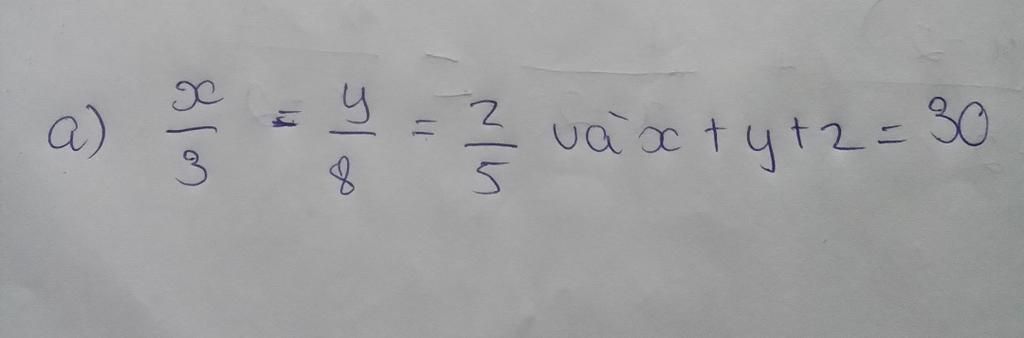 a) x/3 = y/8 = z/5 và x + y + z = 30